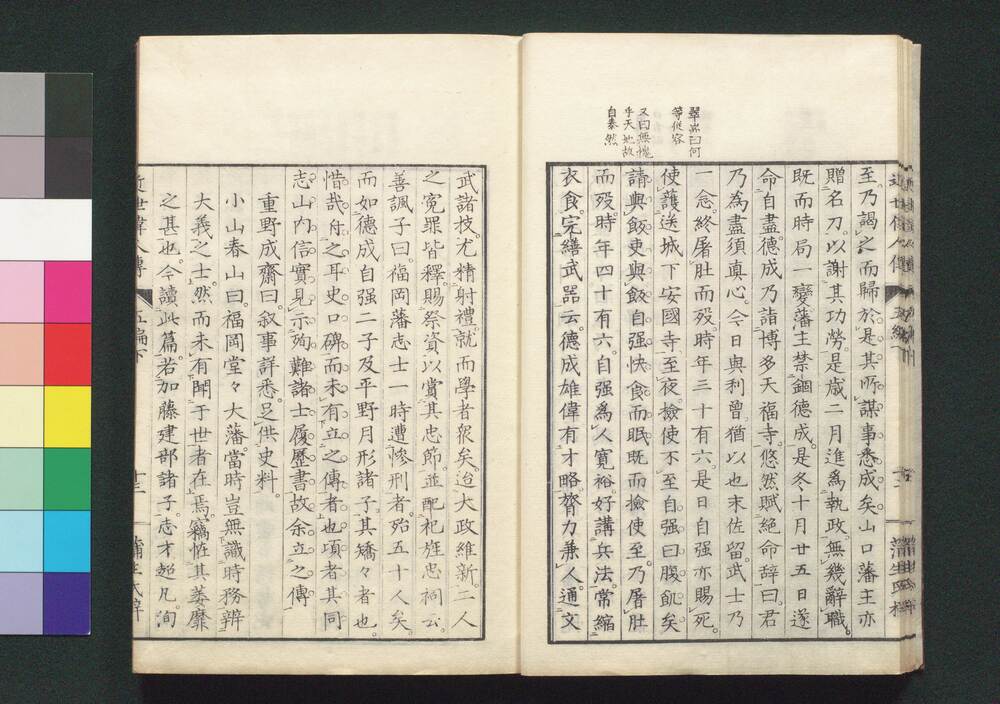 翠嵐曰何
等從容
又曰無愧
乎天地故
自泰然
至乃謁之而歸於是其所謀事悉成矣山口藩主亦
贈名刀以謝其功勞是歲二月進爲執政無幾辭職
既而時局一變藩主禁錮德成是冬十月廿五日遂
命自盡德成乃詣博多天福寺悠然賦絕命辞曰君
乃為盡須眞心今日與利曾猶以也末佐留武士乃
一念終屠肚而歿時年三十有六是日自强亦賜死
使護送城下安國寺至夜撿使不至自强曰腹飢矣
請與飯吏與飯自强快食而眠既而撿使至乃屠肚
而歿時年四十有六自强爲人寬裕好講兵法常縮
衣食完繕武噐云德成雄偉有才略膂力兼人通文
武諸技尤精射禮就而學者衆矣迨大政維新二人
之寃罪皆釋賜祭資以賞其忠節並配祀旌忠祠云
善諷子曰福岡藩志士一時遭慘刑者殆五十人矣
而如德成自强二子及平野月形諸子其矯々者也
惜哉舟之耳史口碑而未有立之傳者也項者其同
志山内信實見示殉難諸士履歷書故余立之傳
重野成齋曰叙事詳悉足供史料
小山春山曰福岡堂々大藩當時豈無識時務辨
大義之士然而未有聞于世者在焉竊恠其萎靡
之甚也今讀此篇若加藤建部諸子志才超凡洵
近世偉人傳
五編下
十二
蒲生氏梓